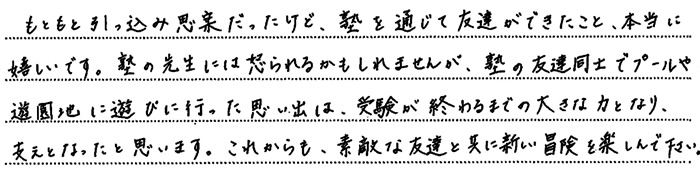 もともと引っ込み思案だったけど、塾を通じて友達ができたこと、本当に
嬉しいです。塾の先生には怒られるかもしれませんが、塾の友達同士でプールや
遊園地に遊びに行った思い出は、受験が終わるまでの大きな力となり、
支えとなったと思います。これからも、素敵な友達と共に新しい冒険を楽しんで下さい。